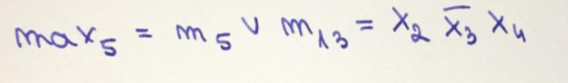 max₅ = m₅ ∨ m₁₃ = x₂ x̅₃ x₄